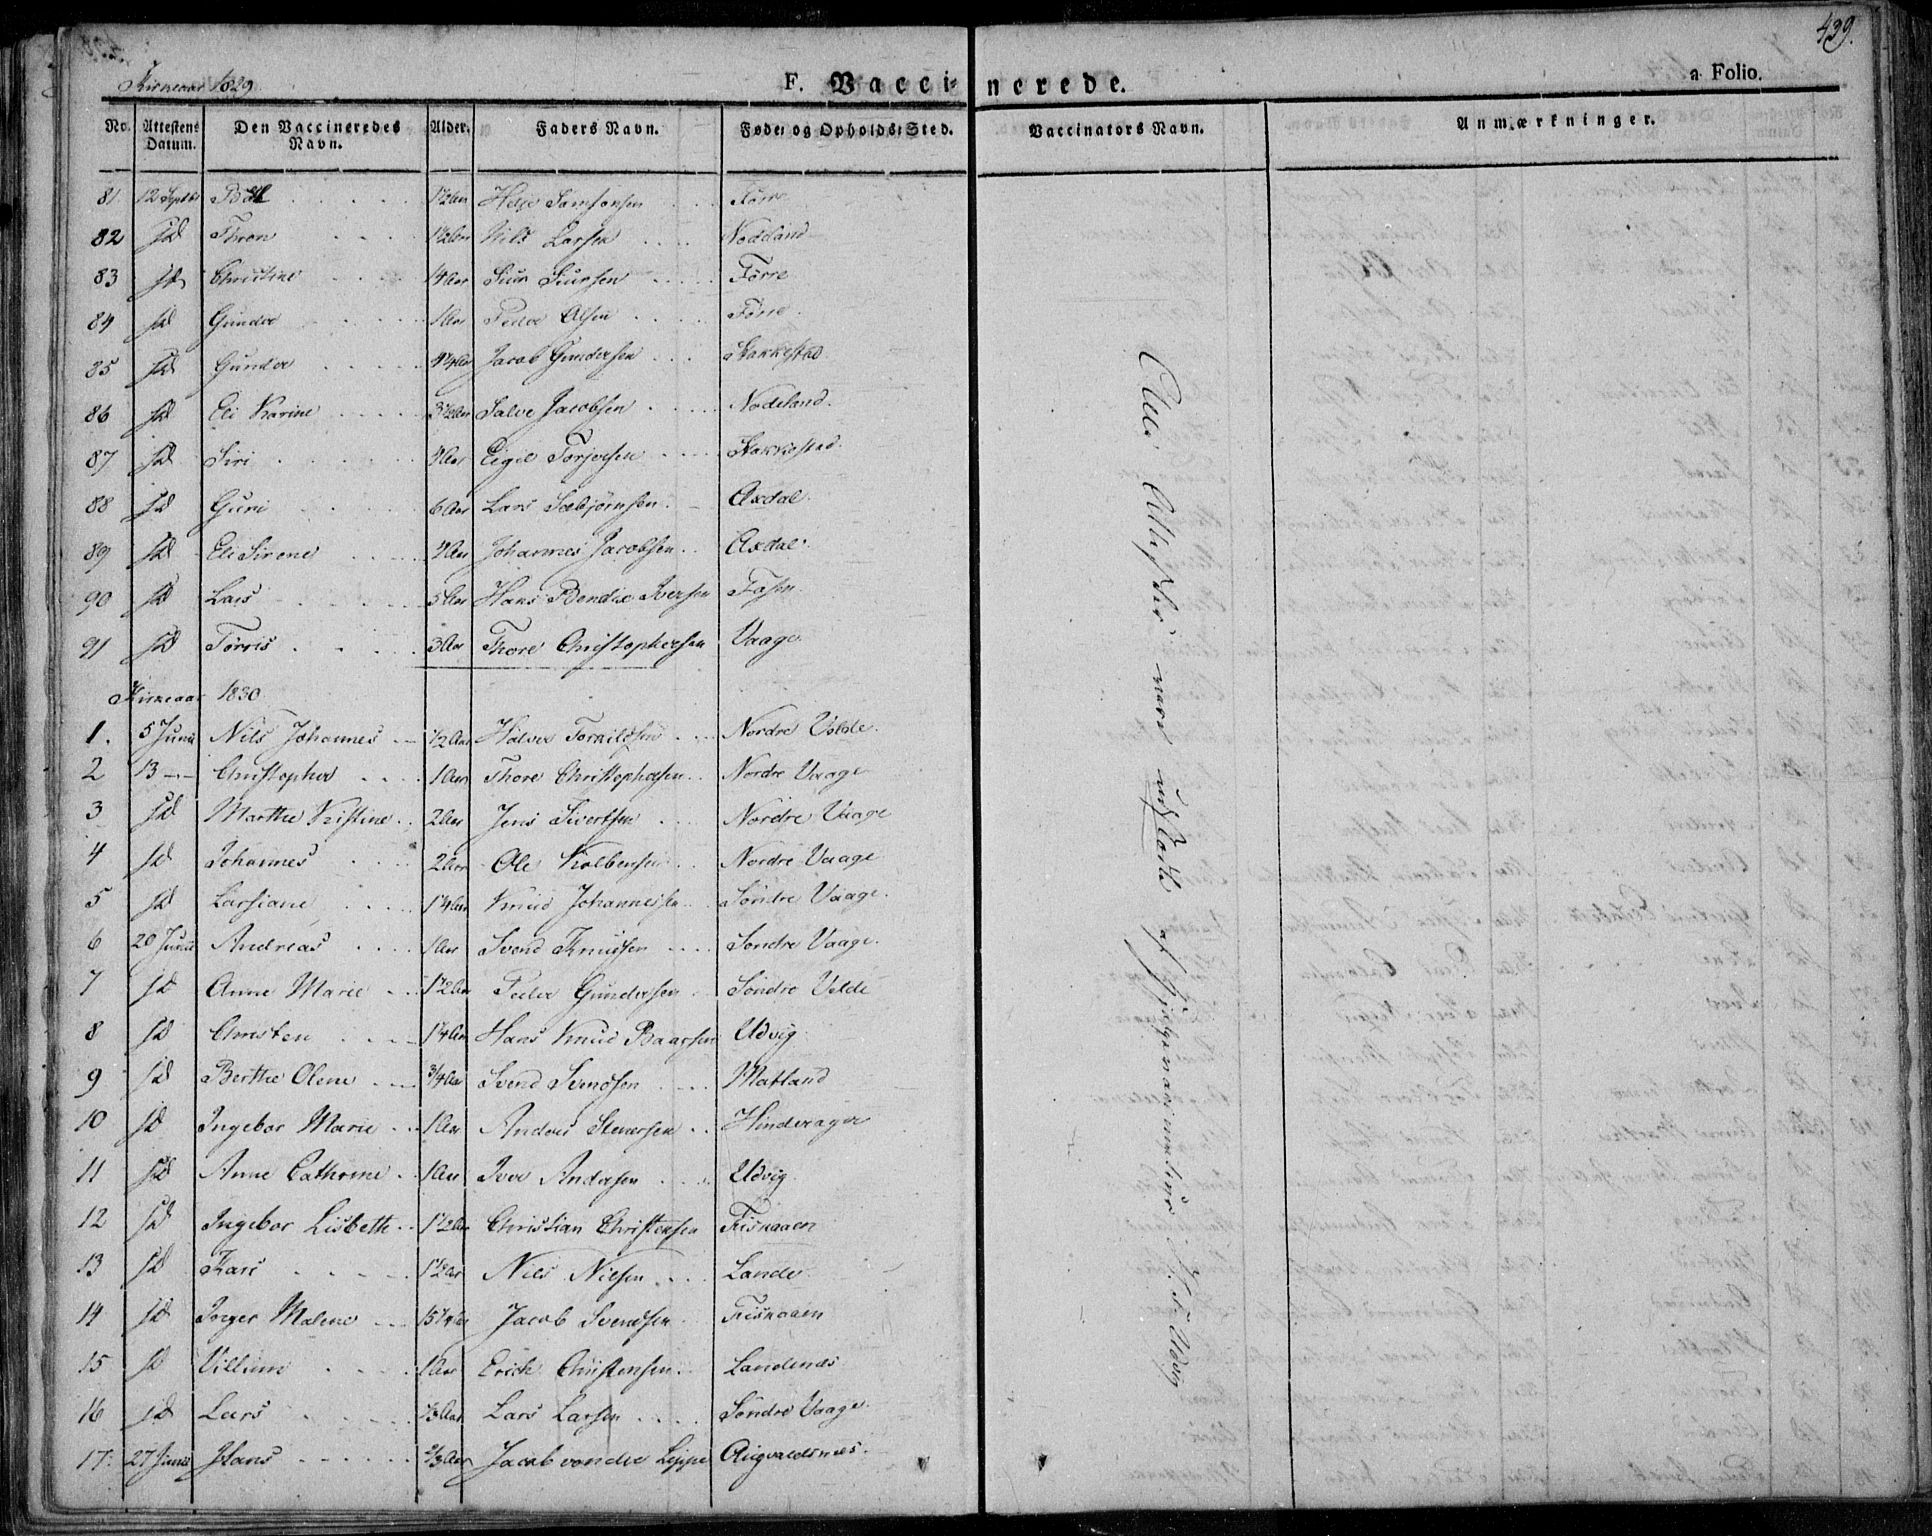 439.
Kirkeaar 1829
F. Vaccinerede.
a Folio.
No. Attestens Datum. Den Vaccineredes Navn. Alder. Faders Navn. Føde- og Opholds-Sted. Vaccinators Navn. Anmærkninger.
81 12 Septbr 1½ Aar Samsonsen Førre
82 sd Thron 1½ Aar Nils Larsen Nodeland
83 sd Christine ¼ Aar Siur Siursen Førre
84 sd Gunder 1 Aar Peder Olsen Førre
85 sd Gunder Jacob Gundersen Stakkestad
86 sd Eli Karine 3½ Aar Salve Jacobsen Nodeland.
87 sd Siri Eigel Torjersen Stakkestad
88 sd Guri 6 Aar Lars Sæbjørnsen Axdal.
89 sd Eli Sirene Johannes Jacobsen Axdal.
90 sd Lars 5 Aar Hans Bendix Iversen Fosen
91 sd Tørris 3 Aar Thore Christophersen Vaage.
Kirkeaar 1830
1. 5 Junii Nils Johannes ½ Aar Halvor Torkildsen Nordre Velde.
2 13 -"- Christopher 1 Aar Thore Christophersen Nordre Vaage
3 sd Marthe Kristine 2 Aar Jens Sivertsen Nordre Vaage
4 sd Johannes 2 Aar Ole Kolbensen Nordre Vaage
5 sd Larsiane 1¼ Aar Knud Johannesen Søndre Vaage.
6 20 Junii Andreas 1 Aar Svend Knudsen Søndre Vaage.
7 sd Anne Marie 1½ Aar Peder Gundersen Søndre Velde
8 sd Christen 1¼ Aar Hans Knud Baarsen Udvig
9 sd Berthe Olene ¾ Aar Svend Svendsen Matland
10 sd Ingebor Marie 1 Aar Anders Steenersen Hinderager
11 sd Anne Cathrine 1 Aar Iver Andersen Udvig
12 sd Ingebor Lisbeth 1½ Aar Christian Christensen Fisnaaen
13 sd Kari 1½ Aar Nils Nilsen Lande.
14 sd Inger Malene Jacob Svendsen Fisnaaen
15 sd Villum 1 Aar Erich Christensen. Landenæs
16 sd Lars ⅓ Aar Lars Larsen Søndre Vaage.
17. 27 Junii Hans ⅔ Aar Jacob von der Lippe Augvaldsnæs.
Alle Attester ere udstædte af Hjelpevaccinateur Udvig